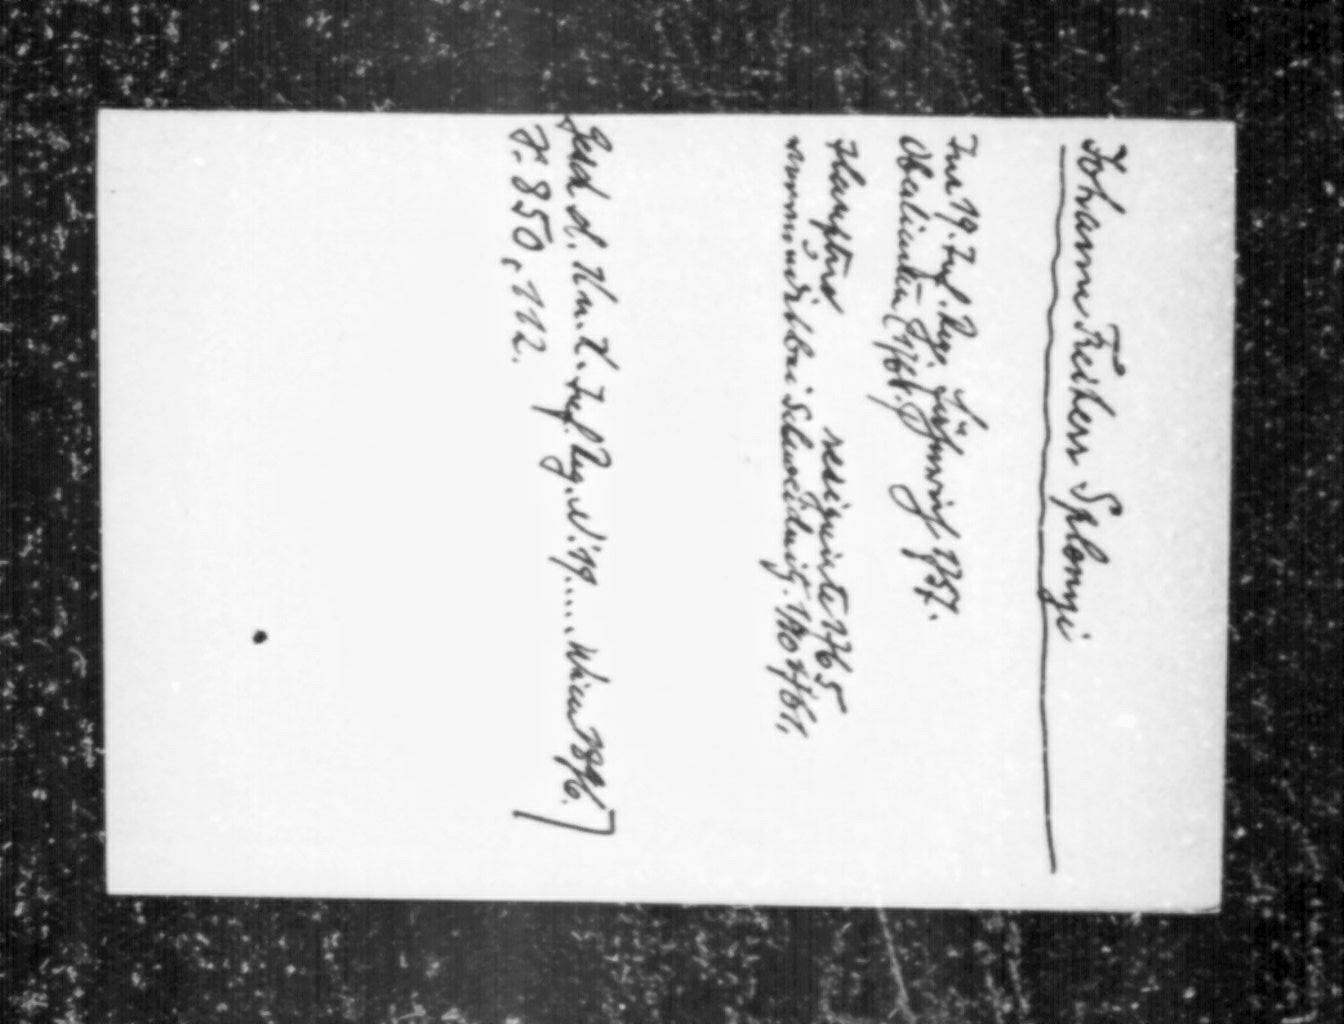 Johann Freiherr Splényi
Im 19. Inf. Reg. Fähnrich 1757.
Oberlieutn. 1761.
Hauptm. resignirte 1765
verwundet bei Schweidnitz. 1/10 1761.
Gesch. d. K. u. K. Inf. Reg. N. 19. .... Wien 1896.
F. 850, 112.